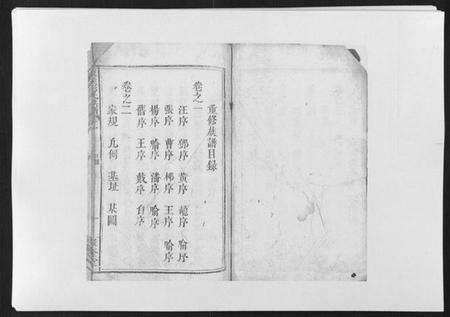 重修族譜目錄
卷之一
汪序 鄧序 黄序 范序 喻序
張序 曹序 柳序 王序 喻序
楊序 喻序 潘序 喻序
舊序 王序 跋序 自序
卷之二
家規 凡例 基址 基圖